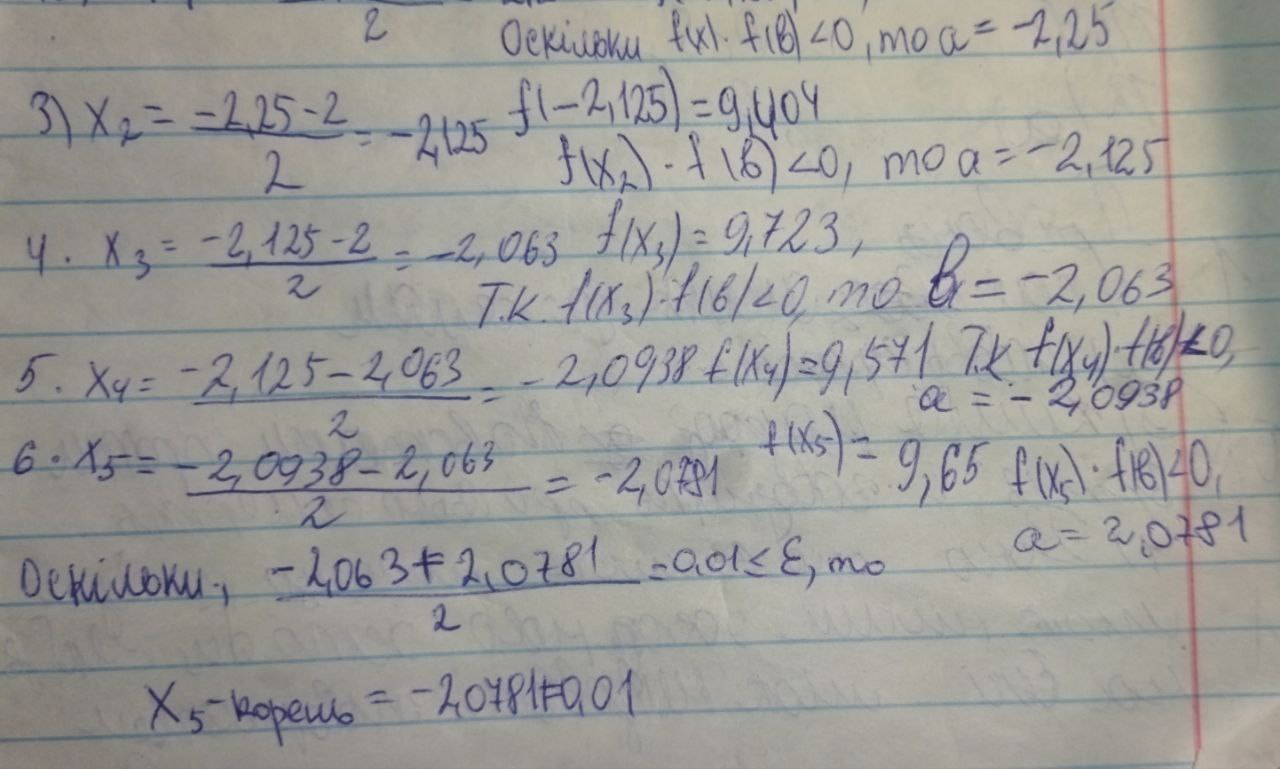 2 Оскільки f(x)·f(в)<0, то a = -2,25
3) X₂ = (-2,25-2)/2 = -2,125 f(-2,125)=9,404
f(x₂)·f(в)<0, то a = -2,125
4. X₃ = (-2,125-2)/2 = -2,063 f(x₃)=9,723,
Т.к. f(x₃)·f(в)<0, то в = -2,063
5. X₄ = (-2,125-2,063)/2 = -2,0938 f(x₄)=9,571 Т.к f(x₄)·f(в)<0,
a = -2,0938
6. X₅ = (-2,0938-2,063)/2 = -2,0781 f(x₅) = 9,65 f(x₅)·f(в)<0,
a = 2,0781
Оскільки, (-2,063+2,0781)/2 = 0,01 ≤ ε, то
X₅-корень = -2,0781+0,01